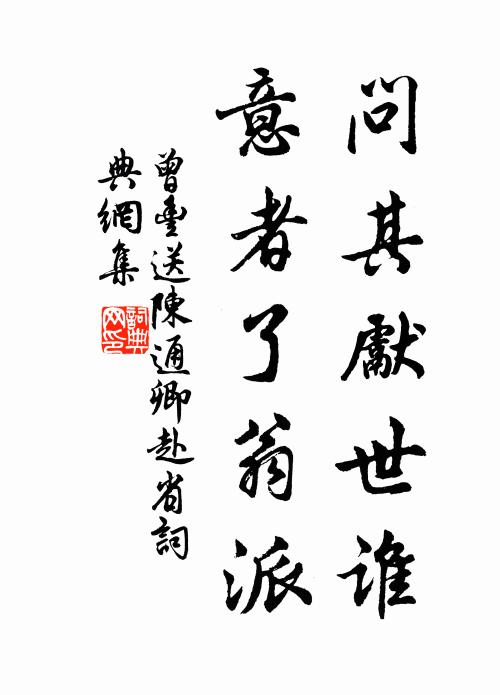 問其獻世誰
意者了翁派
曾豐送陳通卿赴省詞
典網集
詞典
网印